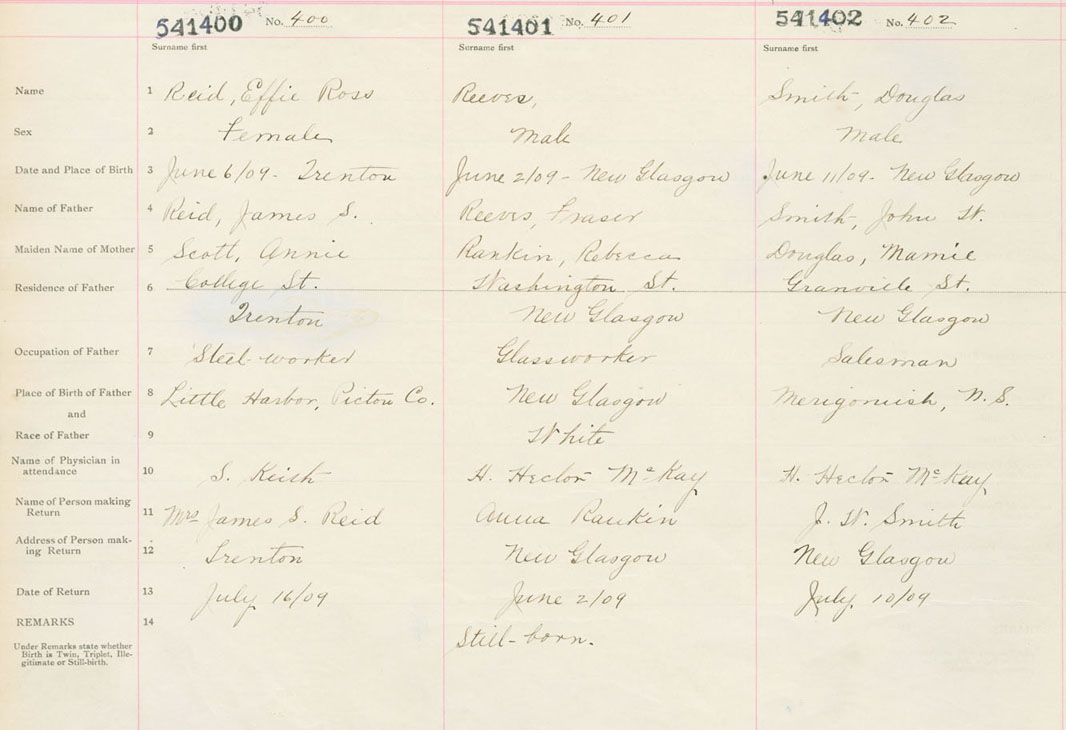 541400 No. 400 541401 No. 401 541402 No. 402
Surname first Surname first Surname first
Name 1 Reid, Effie Ross Reeves, Smith, Douglas
Sex 2 Female Male Male
Date and Place of Birth 3 June 6/09. Trenton June 2/09 - New Glasgow June 11/09. New Glasgow
Name of Father 4 Reid, James S. Reeves, Fraser Smith, John W.
Maiden Name of Mother 5 Scott, Annie Rankin, Rebecca Douglas, Mamie
Residence of Father 6 College St. Washington St. Granville St.
Trenton New Glasgow New Glasgow
Occupation of Father 7 Steel-worker Glassworker Salesman
Place of Birth of Father 8 Little Harbor, Pictou Co. New Glasgow Merigomish, N.S.
and
Race of Father 9 White
Name of Physician in
attendance 10 S. Keith H. Hector McKay H. Hector McKay
Name of Person making
Return 11 Mrs James S. Reid Anna Rankin J. W. Smith
Address of Person mak-
ing Return 12 Trenton New Glasgow New Glasgow
Date of Return 13 July 16/09 June 2/09 July 10/09
REMARKS 14
Still-born.
Under Remarks state whether
Birth is Twin, Triplet, Ille-
gitimate or Still-birth.